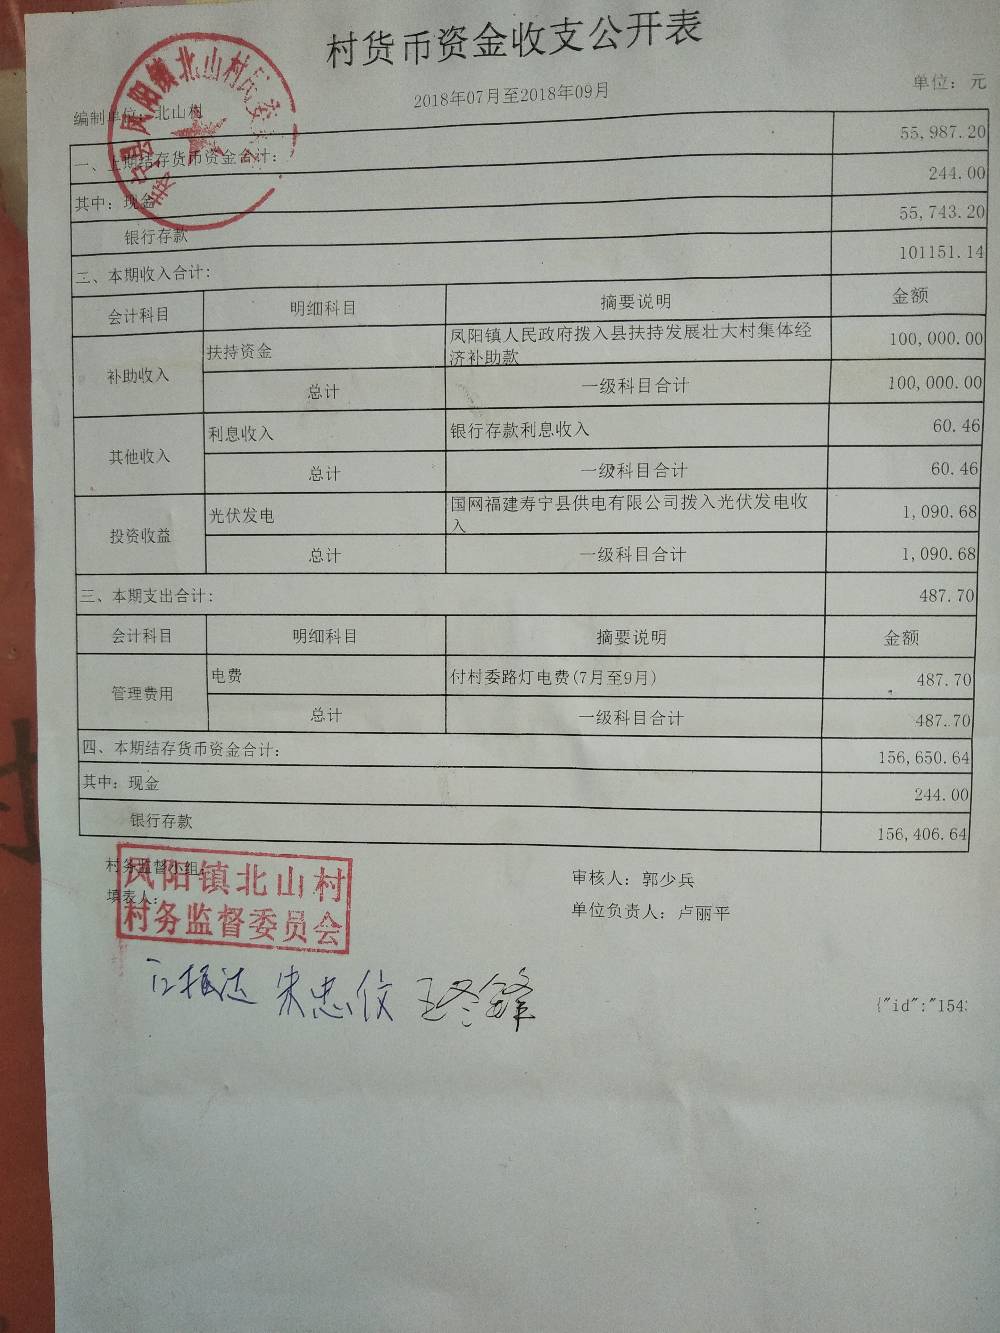 村货币资金收支公开表
2018年07月至2018年09月
编制单位：北山村 单位：元
寿宁县凤阳镇北山村民委
一、上期结存货币资金合计： 55,987.20
其中：现金 244.00
银行存款 55,743.20
二、本期收入合计： 101151.14
会计科目 明细科目 摘要说明 金额
补助收入 扶持资金 凤阳镇人民政府拨入县扶持发展壮大村集体经 100,000.00
济补助款
总计 一级科目合计 100,000.00
其他收入 利息收入 银行存款利息收入 60.46
总计 一级科目合计 60.46
投资收益 光伏发电 国网福建寿宁县供电有限公司拨入光伏发电收 1,090.68
入
总计 一级科目合计 1,090.68
三、本期支出合计： 487.70
会计科目 明细科目 摘要说明 金额
管理费用 电费 付村委路灯电费(7月至9月) 487.70
总计 一级科目合计 487.70
四、本期结存货币资金合计： 156,650.64
其中：现金 244.00
银行存款 156,406.64
村务监督小组： 审核人：郭少兵
填表人： 单位负责人：卢丽平
凤阳镇北山村
村务监督委员会
{"id":"154